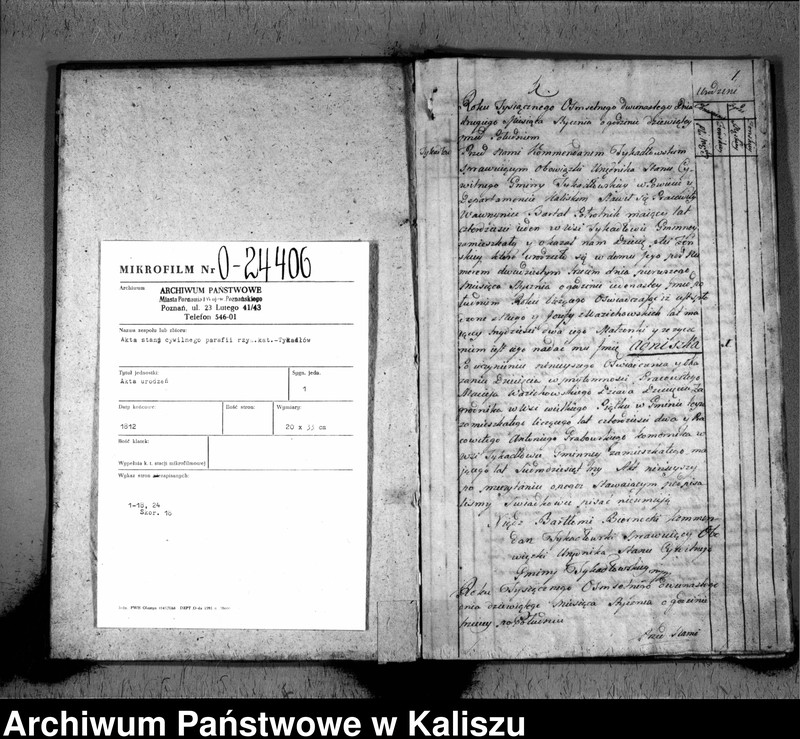 MIKROFILM Nr O-24406
Archiwum
ARCHIWUM PAŃSTWOWE
Miasta Poznania i Wojew. Poznańskiego
Poznań, ul. 23 Lutego 41/43
Telefon 546-01
Nazwa zespołu lub zbioru:
Akta stanu cywilnego parafii rzy.-kat.-Tykadłów
Tytuł jednostki:
Akta urodzeń
Sygn. jedn.
1
Daty końcowe:
1812
Ilość stron:
Wymiary:
20 x 33 cm
Ilość klatek:
Wypełnia k. z. stacji mikrofilmowej
Wykaz stron zapisanych:
1-15, 24
Skor. 16
1
Urodzeni
Roku Tysiącznego Osmsetnego dwunastego Dnia
drugiego Miesiąca Stycznia o godzinie dziewiątej
przed Południem
Przed Nami Kommendarzem Tykadłowskim
sprawuiącym obowiązki Urzędnika Stanu Cy
wilnego Gminy Tykadłowskiey w Powiecie y
Departamencie Kaliskim Stawił się Pracowity
Wawrzyniec Bartol maiący lat
czterdzieści ieden w Wsi Tykadłowie Gminney
zamieszkały y okazał nam Dziecię płci Żeń
skiey które urodziło się w domu Jego pod Nu
merem dwudziestym trzecim dnia pierwszego
Miesiąca Stycznia o godzinie iedenastey przed po
łudniem Roku bieżącego Oswiadczaiąc iż iest spło
dzone z Niego y Jozefy
y ze życze
niem iest iego nadać mu Imię Agniszka
Po uczynieniu ninieyszego Oswiadczenia y oka
zaniu Dziecięcia w przytomności Pracowitego
Macieja
w Wsi w Gminie
zamieszkałego liczącego lat czterdzieści dwa y Pra
cowitego Antoniego Grabowskiego komornika w
Wsi Tykadłowie Gminney zamieszkałego ma
iącego lat Siedmdziesiąt trzy Akt ninieyszy
po przeczytaniu onego Stawaiącym podpisa
liśmy Swiadkowie pisać nieumieią
Xiądz Bartłomi Biernacki Kommen
darz Tykadłowski Sprawuiący Obo
wiązki Urzędnika Stanu Cywilnego
Gminy Tykadłowskiey
Roku Tysiącznego Osmsetnego dwunastego
dnia dziewiątego Miesiąca Stycznia o godzinie
po Południu
Przed Nami
Archiwum Państwowe w Kaliszu